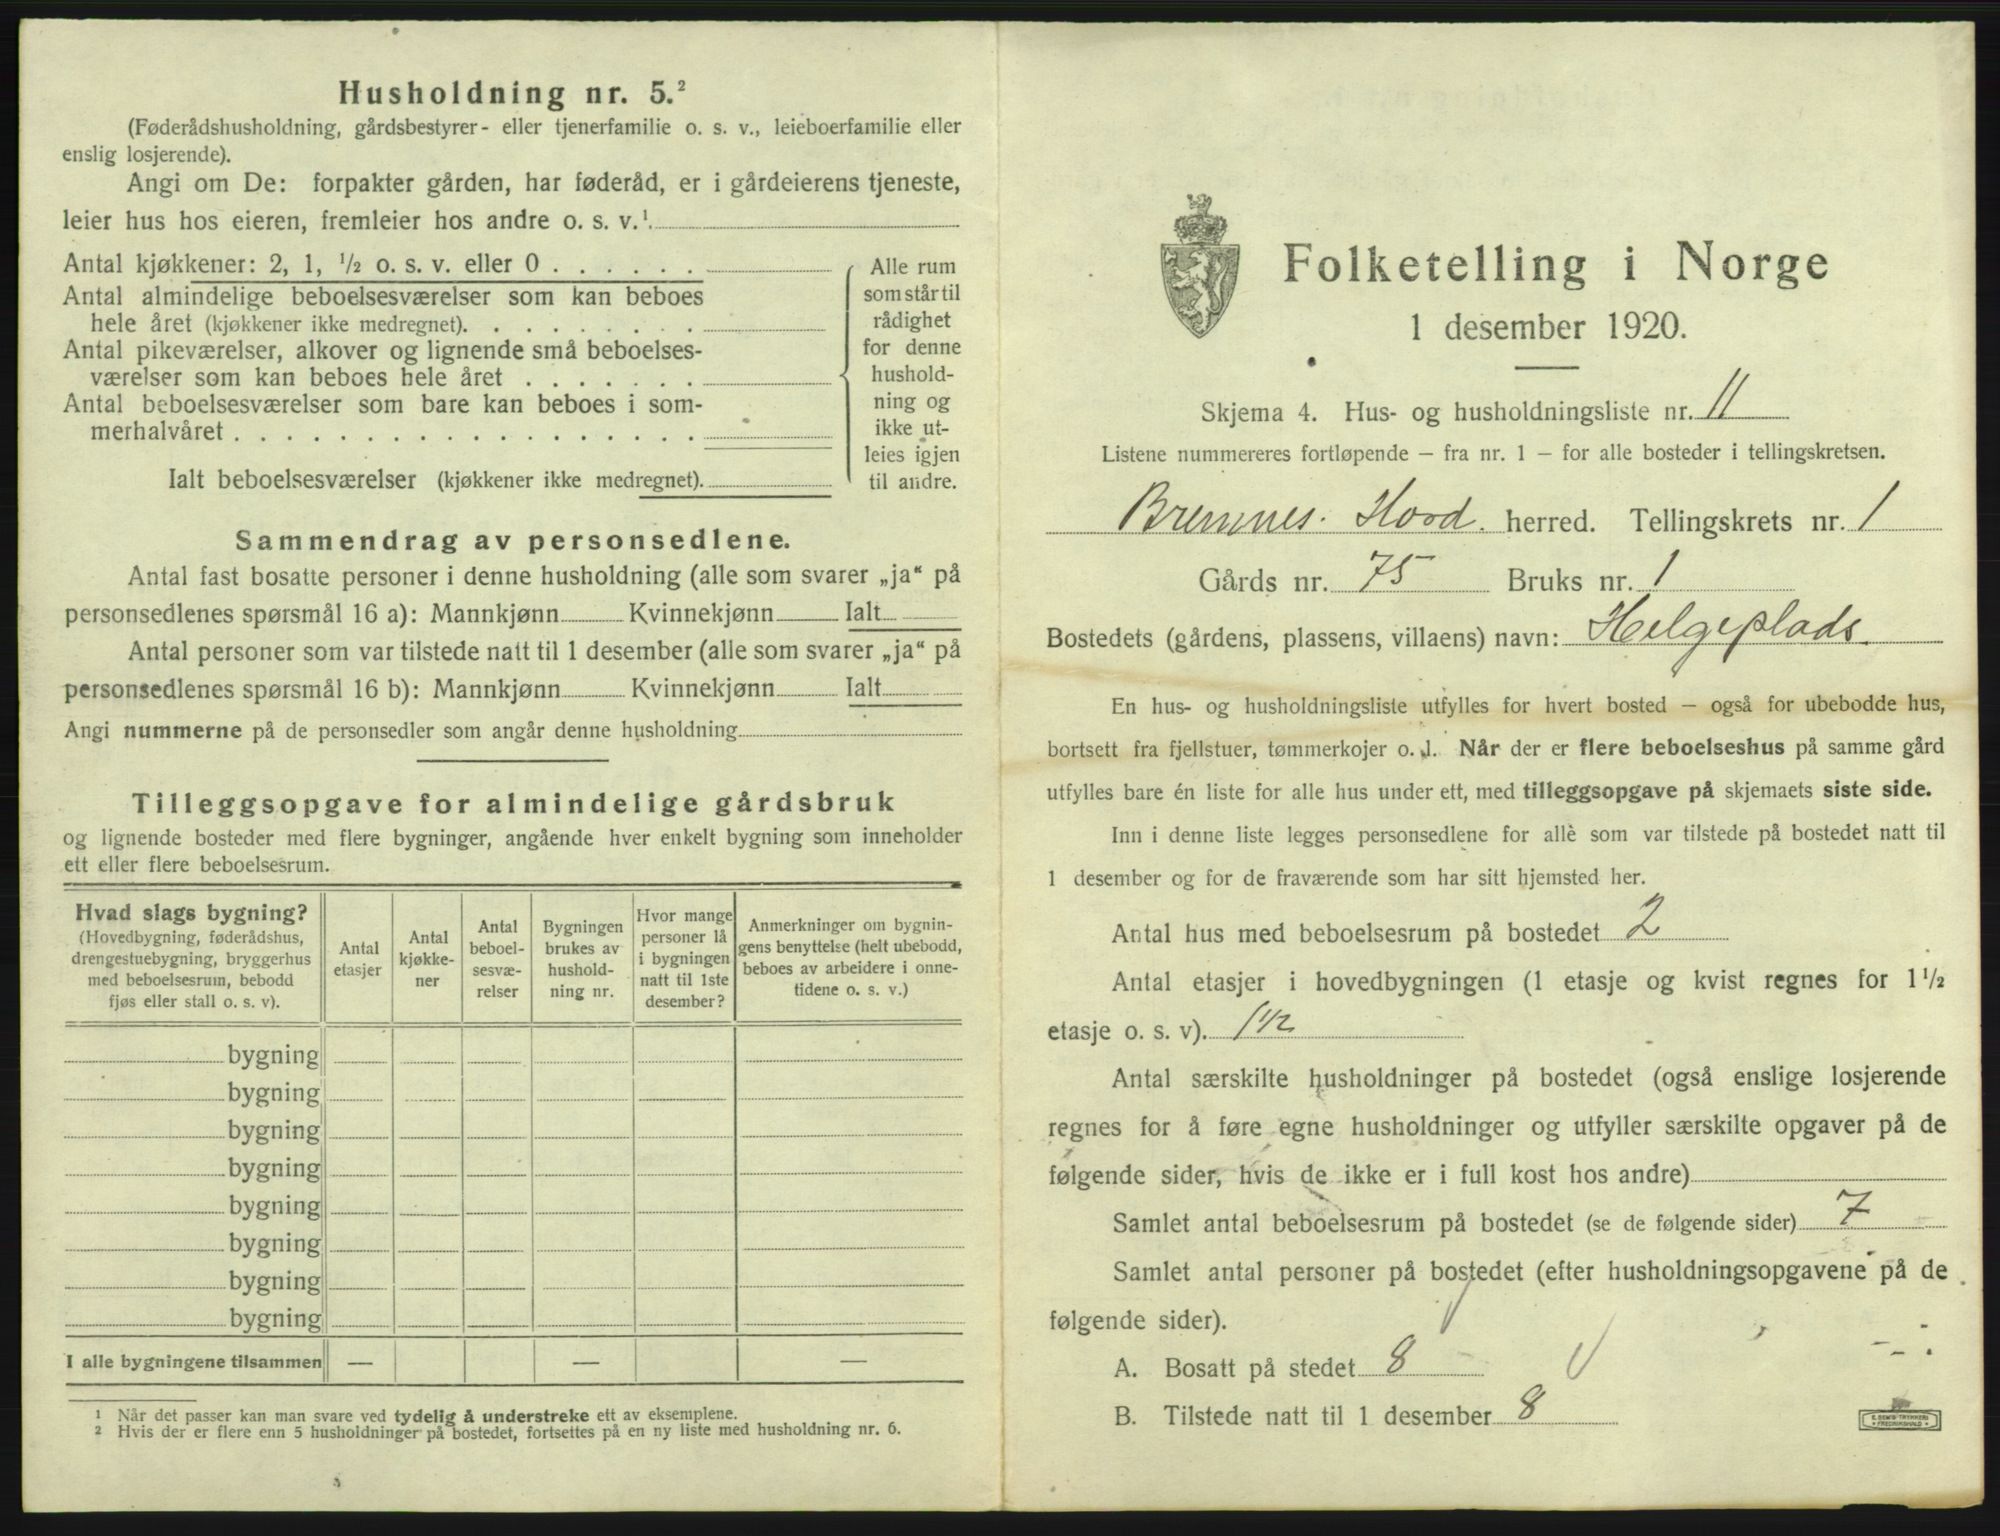 Husholdning nr. 5.²
(Føderådshusholdning, gårdsbestyrer- eller tjenerfamilie o. s. v., leieboerfamilie eller
enslig losjerende).
Angi om De: forpakter gården, har føderåd, er i gårdeierens tjeneste,
leier hus hos eieren, fremleier hos andre o. s. v.¹.
Antal kjøkkener: 2, 1, ½ o. s. v. eller 0 . . . . . .
Antal almindelige beboelsesværelser som kan beboes
hele året (kjøkkener ikke medregnet). . . . . . . . .
Antal pikeværelser, alkover og lignende små beboelses-
værelser som kan beboes hele året . . . . . . .
Antal beboelsesværelser som bare kan beboes i som-
merhalvåret . . . . . . . . . . . . . . . . . .
Ialt beboelsesværelser (kjøkkener ikke medregnet).
Alle rum
som står til
rådighet
for denne
hushold-
ning og
ikke ut-
leies igjen
til andre.
Sammendrag av personsedlene.
Antal fast bosatte personer i denne husholdning (alle som svarer „ja“ på
personsedlenes spørsmål 16 a): Mannkjønn Kvinnekjønn Ialt
Antal personer som var tilstede natt til 1 desember (alle som svarer „ja“ på
personsedlenes spørsmål 16 b): Mannkjønn Kvinnekjønn Ialt
Angi nummerne på de personsedler som angår denne husholdning
Tilleggsopgave for almindelige gårdsbruk
og lignende bosteder med flere bygninger, angående hver enkelt bygning som inneholder
ett eller flere beboelsesrum.
Hvad slags bygning?
(Hovedbygning, føderådshus,
drengestuebygning, bryggerhus
med beboelsesrum, bebodd
fjøs eller stall o. s. v).
Antal
etasjer
Antal
kjøkke-
ner
Antal
beboel-
sesvæ-
relser
Bygningen
brukes av
hushold-
ning nr.
Hvor mange
personer lå
i bygningen
natt til 1ste
desember?
Anmerkninger om bygnin-
gens benyttelse (helt ubebodd,
beboes av arbeidere i onne-
tidene o. s. v.)
bygning
bygning
bygning
bygning
bygning
bygning
bygning
bygning
I alle bygningene tilsammen — — —
¹ Når det passer kan man svare ved tydelig å understreke ett av eksemplene.
² Hvis der er flere enn 5 husholdninger på bostedet, fortsettes på en ny liste med husholdning nr. 6.
Folketelling i Norge
1 desember 1920.
Skjema 4. Hus- og husholdningsliste nr. 11
Listene nummereres fortløpende – fra nr. 1 – for alle bosteder i tellingskretsen.
Bremnes. Hord. herred. Tellingskrets nr. 1
Gårds nr. 75 Bruks nr. 1
Bostedets (gårdens, plassens, villaens) navn: Helgeplads
En hus- og husholdningsliste utfylles for hvert bosted – også for ubebodde hus,
bortsett fra fjellstuer, tømmerkojer o. l. Når der er flere beboelseshus på samme gård
utfylles bare én liste for alle hus under ett, med tilleggsopgave på skjemaets siste side.
Inn i denne liste legges personsedlene for allè som var tilstede på bostedet natt til
1 desember og for de fraværende som har sitt hjemsted her.
Antal hus med beboelsesrum på bostedet 2
Antal etasjer i hovedbygningen (1 etasje og kvist regnes for 1½
etasje o. s. v). 1½
Antal særskilte husholdninger på bostedet (også enslige losjerende
regnes for å føre egne husholdninger og utfyller særskilte opgaver på de
følgende sider, hvis de ikke er i full kost hos andre)
Samlet antal beboelsesrum på bostedet (se de følgende sider) 7
Samlet antal personer på bostedet (efter husholdningsopgavene på de
følgende sider).
A. Bosatt på stedet 8
B. Tilstede natt til 1 desember 8